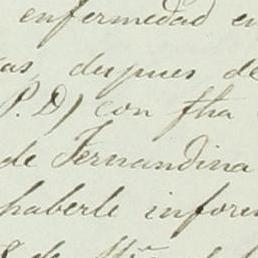 enfermedad en
as, despues de
P. D) con fha
de Fernandina
haberle infor
de